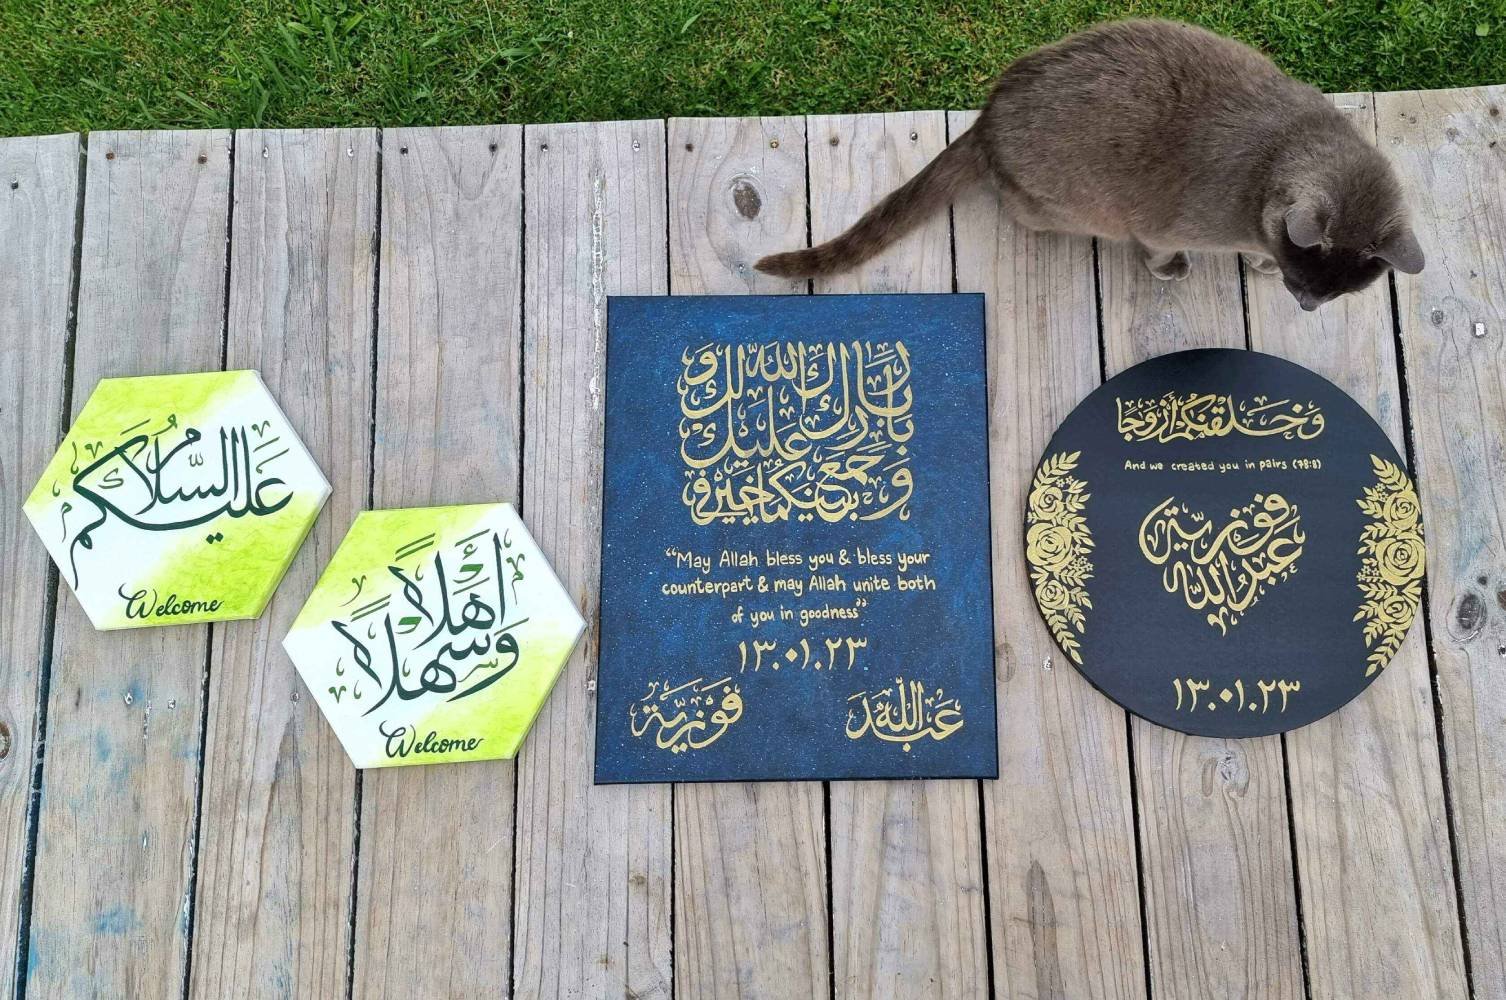 السَّلامُ
عليكم
Welcome
أَهلاً
وسهلاً
Welcome
بارك الله لك و
بارك عليك
وجمع
بينكما في خير
“May Allah bless you & bless your
counterpart & may Allah unite both
of you in goodness”
١٣.٠١.٢٣
عبدالله
فوزية
وَخَلَقْنَكُم أَزْوَجا
And we created you in pairs (78:8)
فوزية
عبدالله
١٣.٠١.٢٣